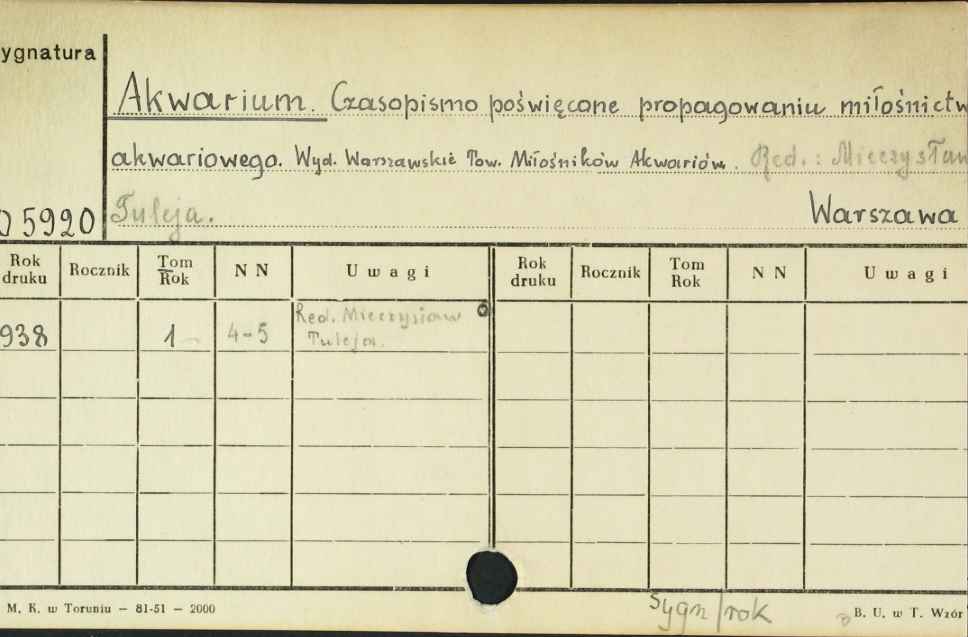 ygnatura
Akwarium. Czasopismo poświęcone propagowaniu miłośnictw
akwariowego. Wyd. Warszawskie Tow. Miłośników Akwariów. Red.: Mieczysław
5920 Tuleja. Warszawa
Rok druku Rocznik Tom Rok N N Uwagi Rok druku Rocznik Tom Rok N N Uwagi
938 1 4-5 Red. Mieczysław
Tuleja.
M. K. w Toruniu — 81-51 — 2000
Sygn/rok
B. U. w T. Wzór